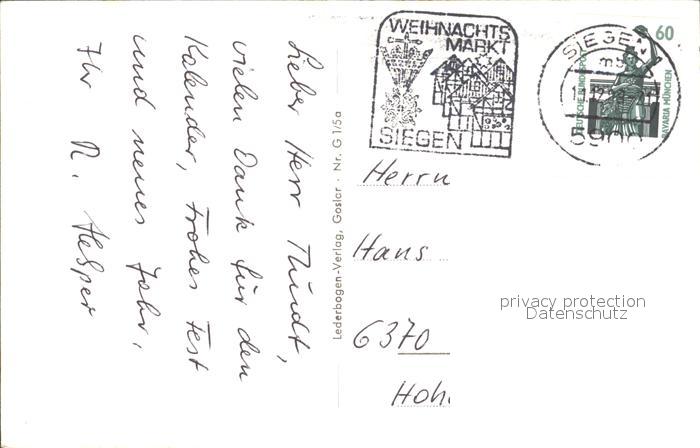 Lieber Herr Thundt,
vielen Dank für den
Kalender, Frohes Fest
und neues Jahr,
Ihr R. Hesper
Lederbogen-Verlag, Goslar · Nr. G 1/5a
WEIHNACHTS
MARKT
SIEGEN
SIEGEN
mb
5900
60
DEUTSCHE BUNDESPOST
BAVARIA MÜNCHEN
Herrn
Hans
6370
Hoh.
privacy protection
Datenschutz